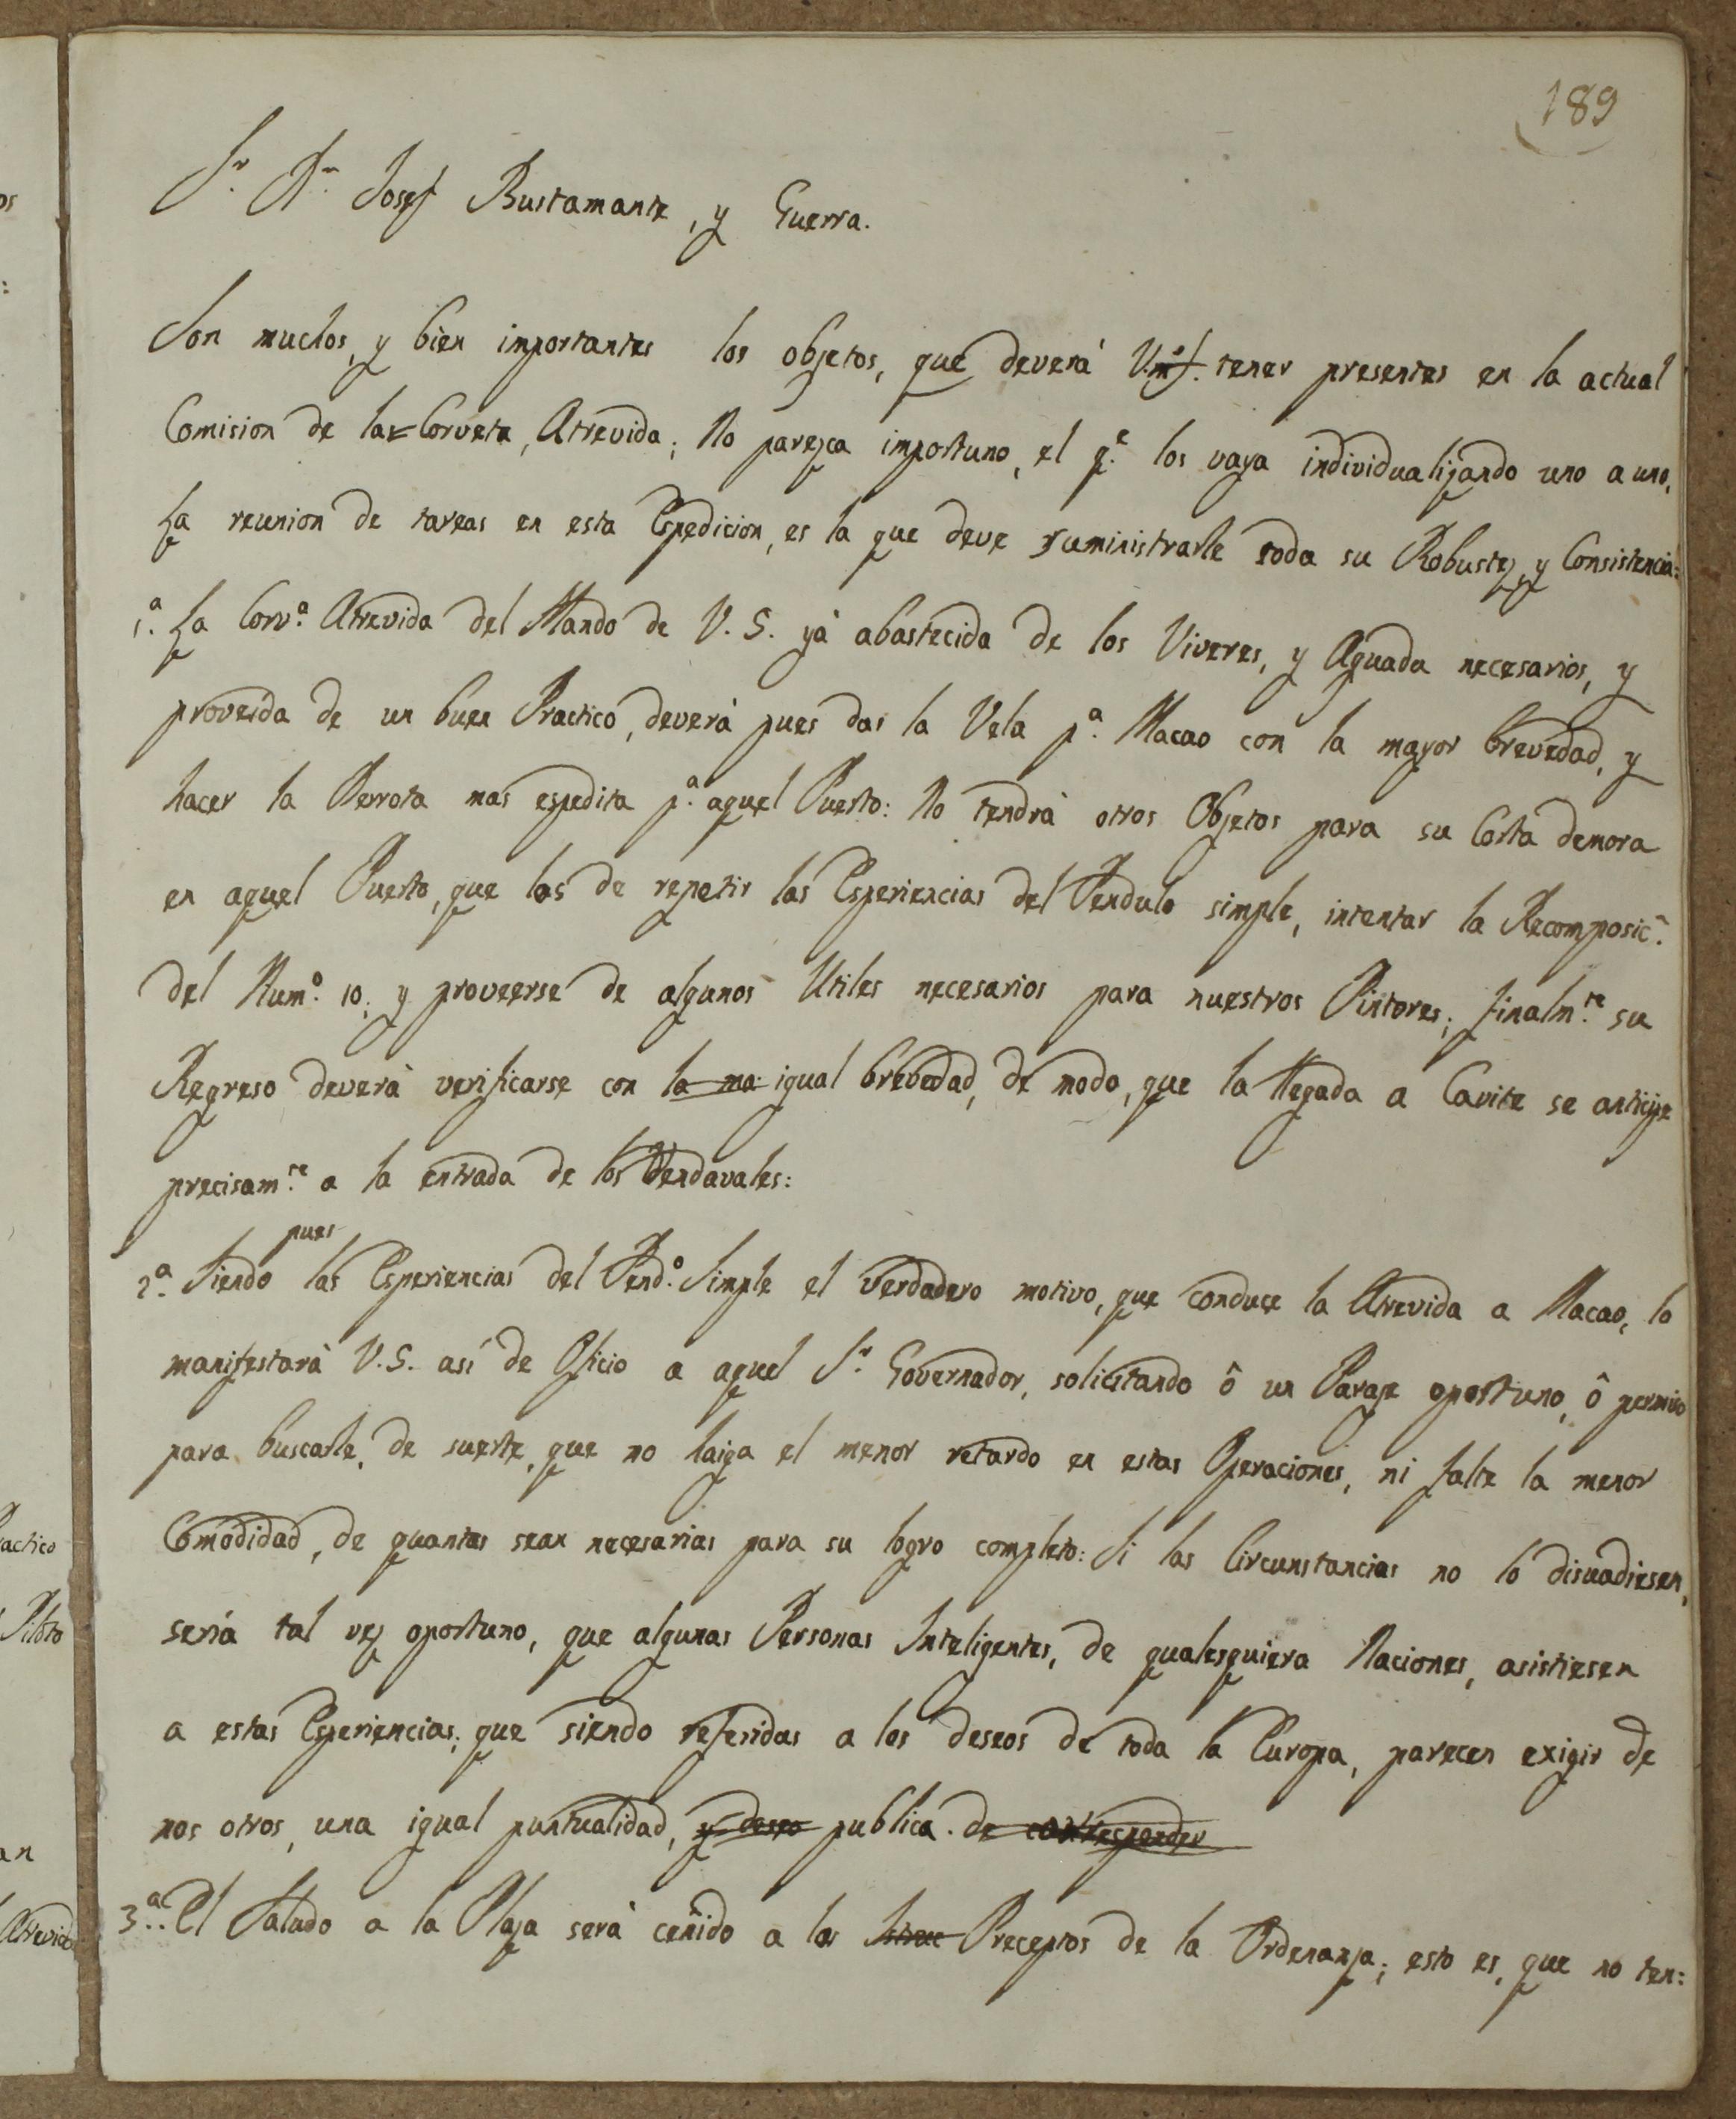 189
Sr. Dn. Josef Bustamante, y Guerra.
Son muchos, y bien importantes los objetos, que deverá V.S. tener presentes en la actual
Comision de la Corveta, Atrevida; No parezca importuno, el qe. los vaya individualizando uno a uno,
La reunion de tareas en esta Espedicion, es la que deve suministrarle toda su Robustez, y Consistencia:
1.a La Corv.a Atrevida del Mando de V.S. yà abastecida de los Viveres, y Aguada necesarios, y
proveida de un buen Practico, deverà pues dar la Vela p.a Macao con la mayor brevedad, y
hacer la Derrota mas espedita p.a aquel Puerto: No tendrà otros Objetos para su Corta demora
en aquel Puerto, que los de repetir las Esperiencias del Pendulo simple, intentar la Recomposicn.
del Num.o 10. y proveerse de algunos Utiles necesarios para nuestros Pintores; finalm.te su
Regreso deverà verificarse con la ma igual brevedad, de modo, que la llegada a Cavite se anticipe
precisam.te a la entrada de los Vendavales:
pues
2.a Siendo las Esperiencias del Pend.o Simple el verdadero motivo, que conduce la Atrevida a Macao, lo
manifestarà V.S. asi de Oficio a aquel Sr. Governador, solicitando ô un Parage oportuno, ô permiso
para buscarle, de suerte, que no haiga el menor retardo en estas Operaciones, ni falte la menor
Comodidad, de quantas sean necesarias para su logro completo: Si las Circunstancias no lo disuadiesen,
seria tal vez oportuno, que algunas Personas Inteligentes, de qualesquiera Naciones, asistiesen
a estas Esperiencias; que siendo referidas a los deseos de toda la Europa, parecen exigir de
nos otros, una igual puntualidad, y deseo publica. de corresponder
3.a El Saludo a la Plaza serà ceñido a los Preceptos de la Ordenanza; esto es, que no ten:
actico
Piloto
an
Atrevida